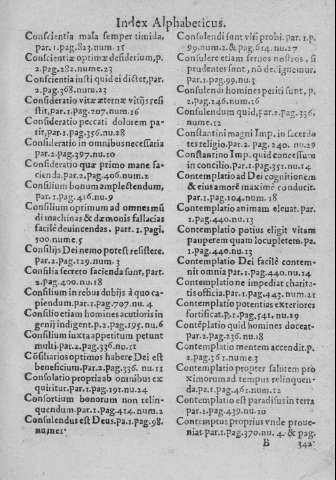 Index Alphabeticus.
Conscientia mala semper timida,
par.1.pag.823.num.15
Conscientiæ optimæ desiderium, p.
2.pag.282.nume.23
Conscientia iusti quid ei dictet, par.
2.pag.368.num.23
Consideratio vitæ æternæ vitijs resi
stit, par.1.pag.707.num.16
Consideratio peccati dolorem pa-
rit, par.1.pag.356.nu.28
Consideratio in omnibus necessaria
par.2.pag.397.nu.10
Consideratio quæ primo mane fa-
cienda.par.2.pag.406.num.2
Consilium bonum amplectendum,
par.1.pag.416.nu.9
Consilium optimum ad omnes mũ
di machinas & dæmonis fallacias
facilè deuincendas. part. 1. pagi.
300.nume.5
Consilijs Dei nemo potest resistere.
par.2.pag.129.num.3
Consilia secreto facienda sunt, part.
2.pag.400.nu.18
Consilium in rebus dubijs à quo ca-
piendum.par.1.pag.707.nu.4
Consilio etiam homines acutioris in
genij indigent.p.2.pag.195.nu.6
Consilium iuxta appetitum petunt
multi.par.2.pag.336.nu.11
Cõsiliarios optimos habere Dei est
beneficium.par.2.pag.336. nu.11
Consolatio propria ab omnibus ex
quiritur.par.1.pag.191.nu.24
Consortium bonorum non relin-
quendum.par.1.pag.414.num.2
Consulendus est Deus.pa.1.pag.98.
nume:
Consulendi sunt viri probi.par.1.p.
99.num.2.& pag.614.nu.27
Consulere etiam seruos nostros, si
prudentes sunt, nõ dedignemur.
par.1.pag.99.nu.3
Consulendi homines periti sunt, p.
2.pag.246.num.16
Consulendum quid, par.2.pag.336.
nume.12
Constantini magni Imp. in sacerdo
tes religio.par.2.pag. 240. nu.29
Constantino Imp. quid concessum
in concilio.par.1.pag.351.nu.14
Contemplatio ad Dei cognitionem
& eius amorẽ maximè conducit.
par.1.pag.104.num.18
Contemplatio animam eleuat.par.
1.pag.440.nu.13
Contemplatio potius eligit vitam
pauperem quam locupletem.pa.
1.pag.440.nu.13
Contemplatio Dei facilè contem-
nit omnia par.1.pag.440.nu.14
Contemplatio ne impediat charita-
tis officia.par.1.pag.443.num.21
Contemplatio potentias exteriores
fortificat.p.1.pag.541. nu.19
Contẽplatio quid homines doceat-
par.2.pag.336.nu.18
Contemplatio mentem accendit.p.
2.pag.361.nume.3
Contemplatio propter salutem pro
ximorum ad tempus relinquen-
da.pa.1.pag.440.nu.12
Contemplatio est paradisus in terra
par.1.pag.439.nu.10
Contemptus proprius vnde proue-
niat.par.1.pag.370.nu. 4. & pag.
B 342.